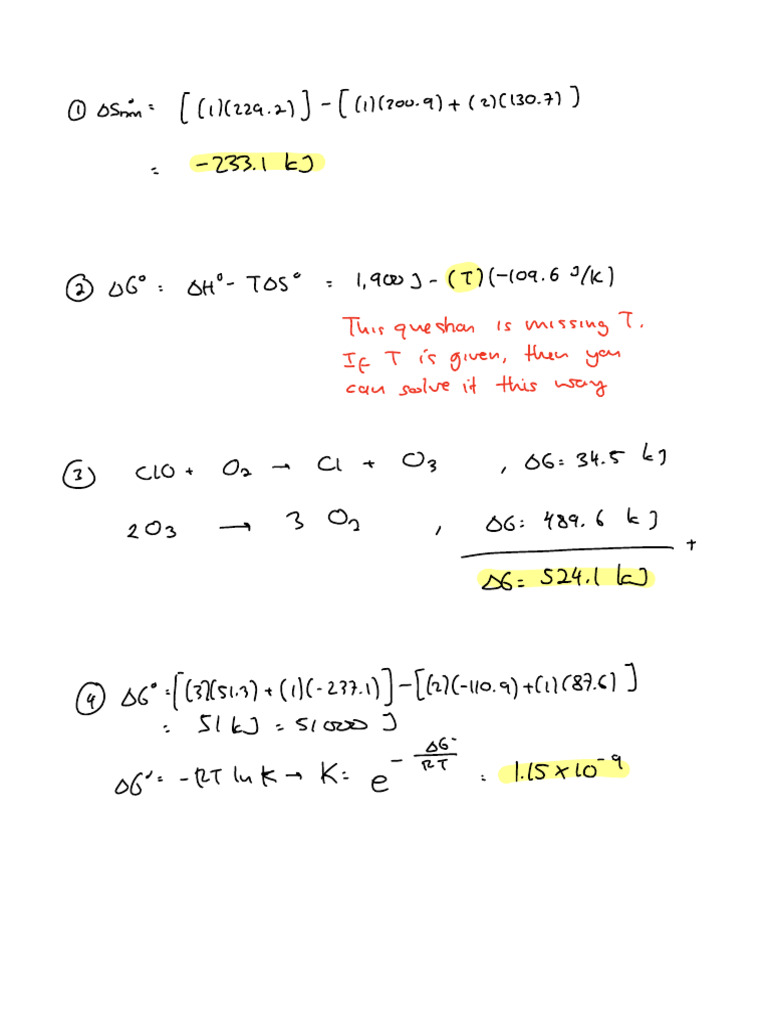 ① ΔS°rxn = [(1)(229.2)] - [(1)(200.9) + (2)(130.7)]
= -233.1 kJ
② ΔG° = ΔH° - TΔS° = 1,900 J - (T)(-109.6 J/K)
This question is missing T.
If T is given, then you
can solve it this way
③ ClO + O2 → Cl + O3 , ΔG = 34.5 kJ
2O3 → 3 O2 , ΔG: 489.6 kJ
+
ΔG = 524.1 kJ
④ ΔG° = [(3)(51.3) + (1)(-237.1)] - [(2)(-110.9) + (1)(87.6)]
= 51 kJ = 51000 J
ΔG° = -RT ln K → K = e^(-ΔG°/RT) = 1.15 x 10^-9